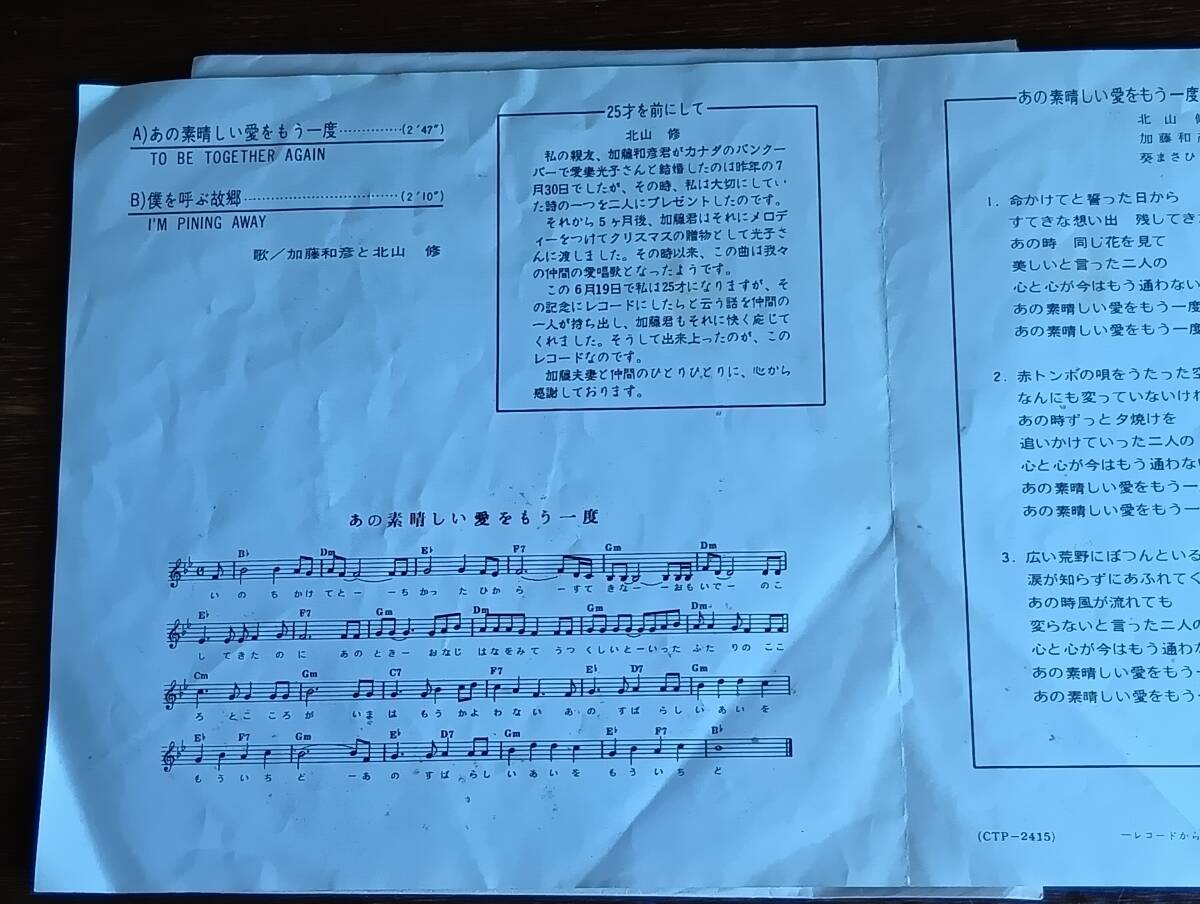 A)あの素晴しい愛をもう一度…………(2′47″)
TO BE TOGETHER AGAIN
B)僕を呼ぶ故郷…………………………(2′10″)
I'M PINING AWAY
歌/加藤和彦と北山 修
25才を前にして
北山 修
私の親友、加藤和彦君がカナダのバンクー
バーで愛妻光子さんと結婚したのは昨年の7
月30日でしたが、その時、私は大切にしてい
た詩の一つを二人にプレゼントしたのです。
それから5ヶ月後、加藤君はそれにメロデ
ィーをつけてクリスマスの贈物として光子さ
んに渡しました。その時以来、この曲は我々
の仲間の愛唱歌となったようです。
この6月19日で私は25才になりますが、そ
の記念にレコードにしたらと云う話を仲間の
一人が持ち出し、加藤君もそれに快く応じて
くれました。そうして出来上ったのが、この
レコードなのです。
加藤夫妻と仲間のひとりひとりに、心から
感謝しております。
あの素晴しい愛をもう一度
B♭ Dm E♭ F7 Gm Dm
いのちかけてとーーちかったひからーすてきなーーおもいでーのこ
E♭ F7 Gm Dm Gm Dm
してきたのに あのときーおなじはなをみてうつくしいとーいったふたりのここ
Cm Gm C7 F7 E♭ D7 Gm
ろとこころが いまはもうかよわない あのすばらしいあいを
E♭ F7 Gm E♭ D7 Gm E♭ F7 B♭
もういちどーあのすばらしいあいをもういちど
あの素晴しい愛をもう一度
北山 修
加藤和彦
葵まさひ
1. 命かけてと誓った日から
すてきな想い出 残してき
あの時 同じ花を見て
美しいと言った二人の
心と心が今はもう通わない
あの素晴しい愛をもう一度
あの素晴しい愛をもう一度
2. 赤トンボの唄をうたった空
なんにも変っていないけれ
あの時ずっと夕焼けを
追いかけていった二人の
心と心が今はもう通わな
あの素晴しい愛をもう一
あの素晴しい愛をもう一
3. 広い荒野にぽつんといる
涙が知らずにあふれてく
あの時風が流れても
変らないと言った二人の
心と心が今はもう通わ
あの素晴しい愛をもう
あの素晴しい愛をもう
(CTP-2415)
ーレコードから